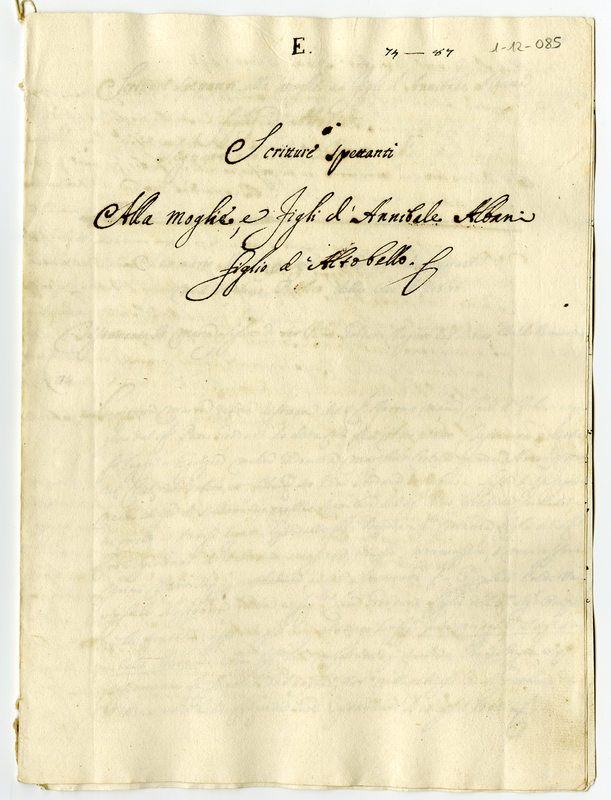 E. 74 — 87 1-12-085
Scritture spettanti
Alla moglie, e figli d' Annibale Albani
figlio d' Altobello.